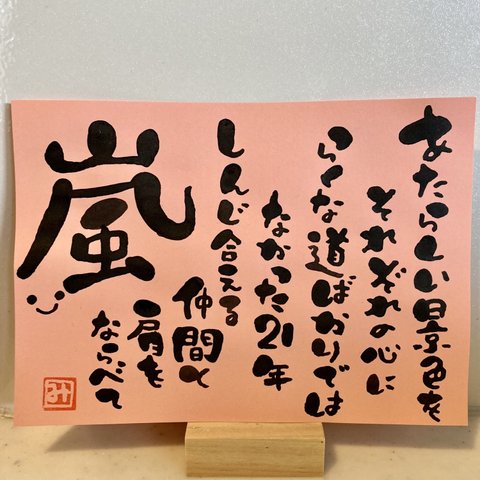 あたらしい景色を
それぞれの心に
らくな道ばかりでは
なかった21年
しんじ合える
仲間と
肩を
ならべて
嵐
み